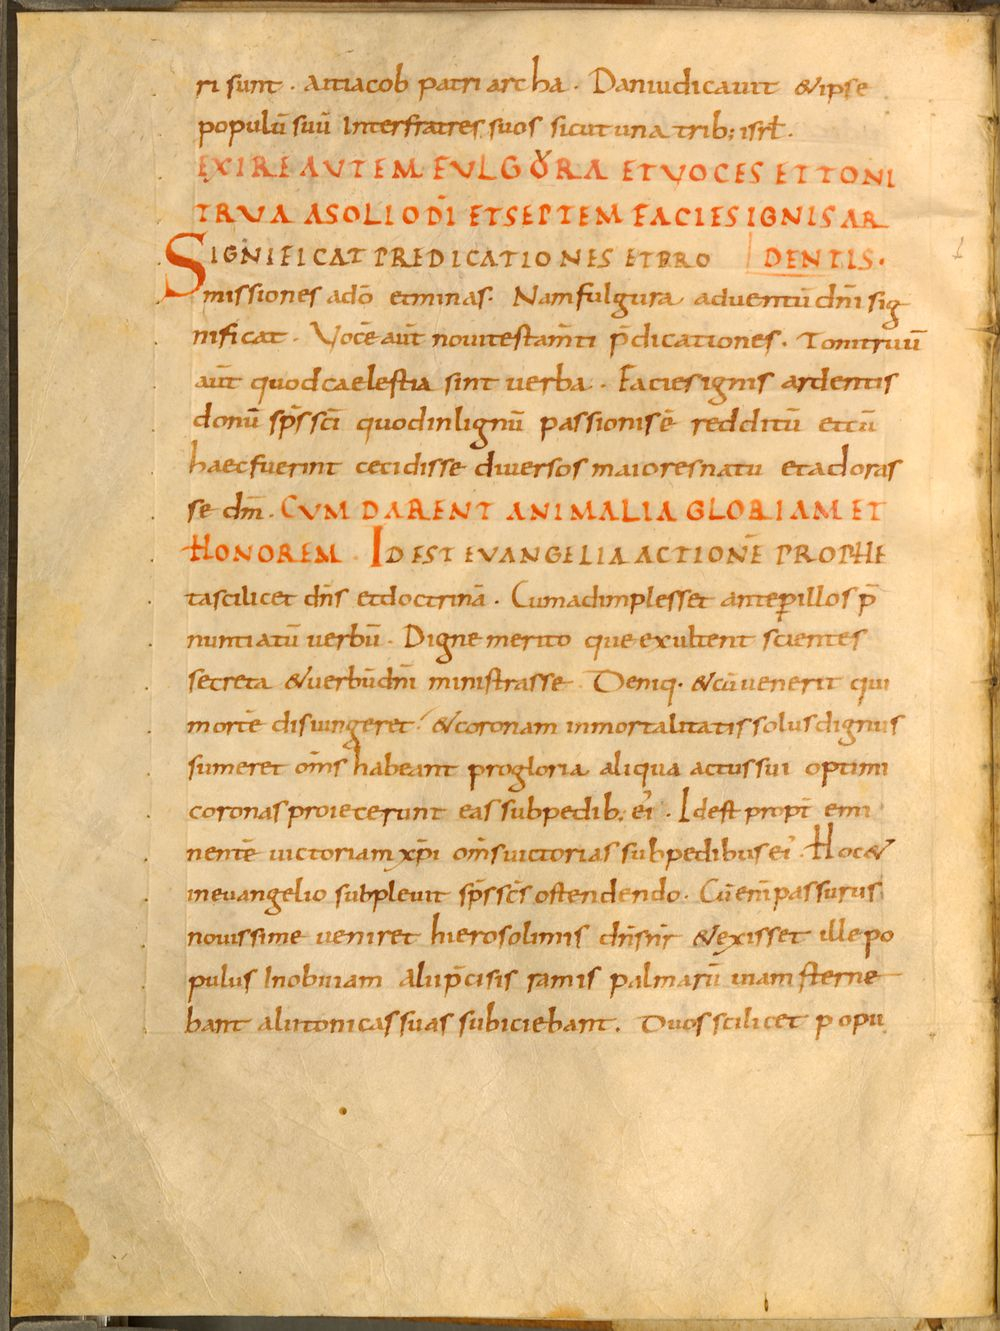 ri sunt · Ait iacob patriarcha · Dan iudicauit & ipse
populū suū Inter fratres suos sicut una trib; isrł.
EXIRE AUTEM FULGORA ET VOCES ET TONI
TRUA A SOLIO DĪ ET SEPTEM FACIES IGNIS AR
DENTIS·
SIGNIFICAT PREDICATIONES ET PRO
missiones adō et minas· Nam fulgura aduentū dn̄i sig
nificat · Vocē aūt noui testam̄ti p̄dicationes · Tonitruū
aūt quod caelestia sint uerba · Facies ignis ardentis
donū sp̄s sc̄i quod in lignū passionis ē redditū et cū
haec fuerint cecidisse diuersos maiores natu et adoras
se dm̄ · CUM DARENT ANIMALIA GLORIAM ET
HONOREM · ID EST EVANGELIA ACTIONĒ PROPHE
tas cilicet dn̄s et doctrinā · Cum adimplesset ante ꝑ illos p̄
nuntiatū uerbū · Digne merito que exultent scientes
secreta & uerbū dn̄i ministrasse · Deniq· & cū uenerit qui
mortē disiungeret / & coronam inmortalitatis solus dignus
sumeret om̄s habeant pro gloria aliqua actus sui optimi
coronas proiecerunt eas sub pedib; ei' · Id est propt̄ emi
nentē uictoriam xp̄i om̄s uictorias sub pedibus ei' · Hoc &
in euangelio subpleuit sp̄s sc̄s ostendendo · Cū enī passurus
nouissime ueniret hierosolimis dn̄s nr̄ & exisset ille po
pulus In obuiam alii p̄cisis ramis palmarū uiam sterne
bant alii tonicas suas subiciebant. Duos scilicet popu